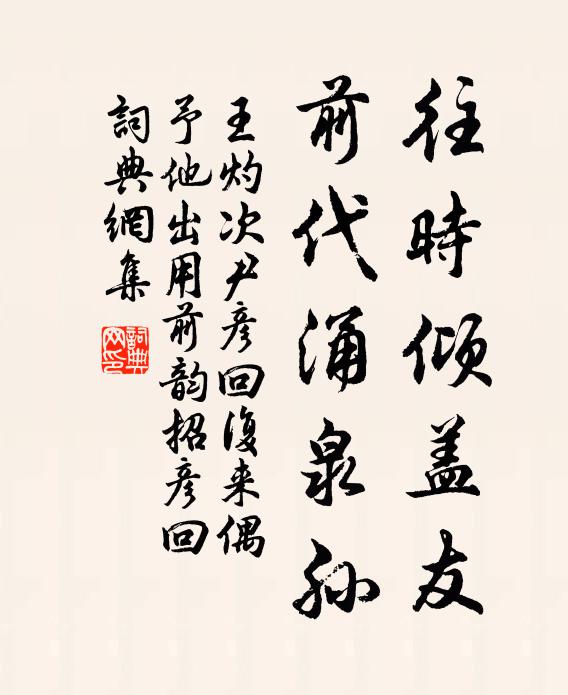 往時傾盖友
前代涌泉孙
王灼次尹彦回復来偶
予他出用前韵招彦回
詞典網集
詞典网印